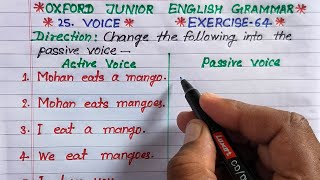 *OXFORD JUNIOR ENGLISH GRAMMAR*
*25. VOICE* *EXERCISE-64*
Direction: Change the following into the
passive voice —
Active Voice Passive Voice
1. Mohan eats a mango.
2. Mohan eats mangoes.
3. I eat a mango.
4. We eat mangoes.